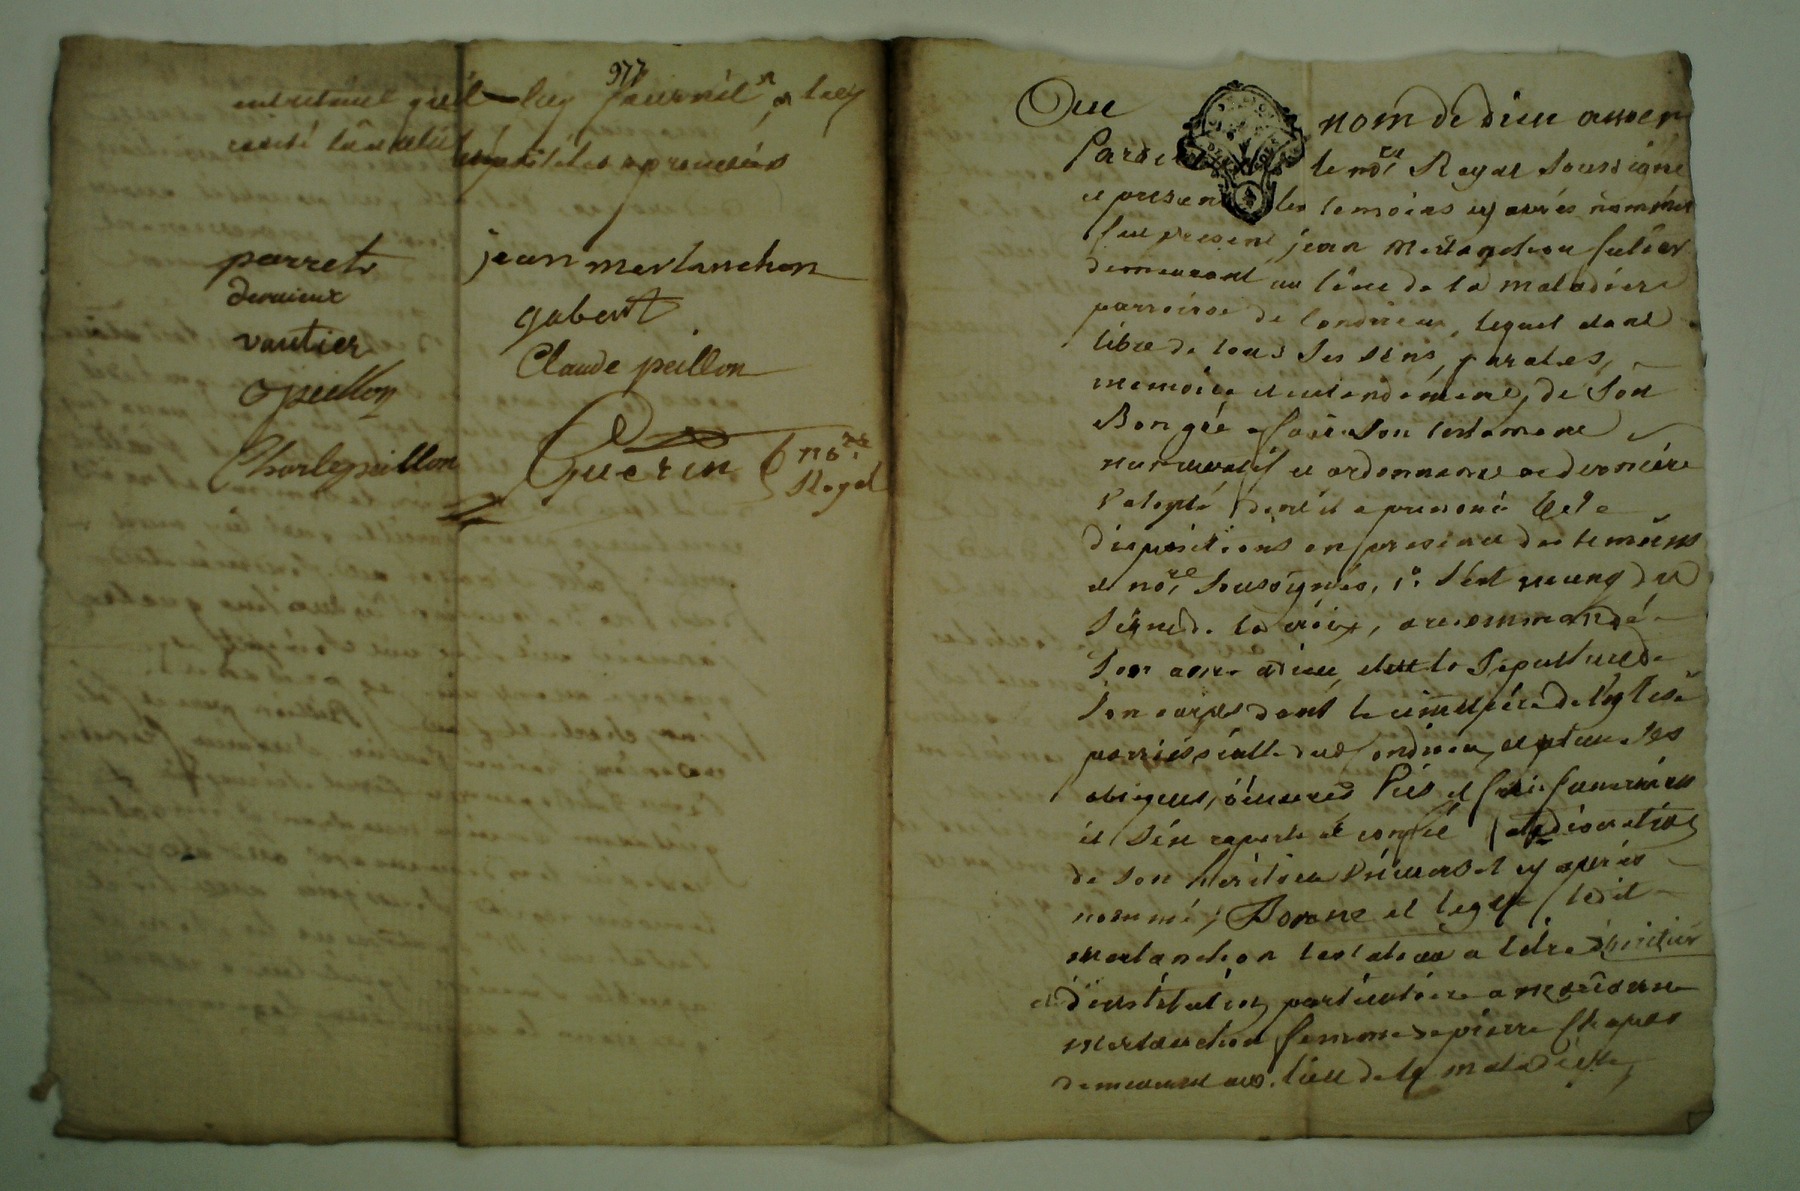 977
entretenir qu'il luy fournit, et luy
parret jean merlanchon
deruieux gabert
vautier Claude peillon
c peillon
Charle peillon Guerin no.re Royal
Au nom de dieu amen
Pardevant le no.re Royal soussigné
et présent les temoins cy après nommés
fut present jean Merlanchon fulier
demeurant au lieu de la maladiere
parroisse de Condrieu, lequel etant
libre de tous ses sens, paroles,
memoire et entendement, de son
Bon gré a fait son testament
nuncupatif et ordonnance de derniere
volonté dont il a prononcé les
dispositions en presence des temoins
et no.re soussignés, 1.° s'est muny du
signe de la croix, a recommandé
son ame a dieu, elut la sepulture de
son corps dans le cimetière de l'église
parroissialle dud Condrieu, et pour ses
obseques, œuvres Pies et frais funeraires
il s'en raporte et confie a la discretion
de son héritier universel cy après
nommé, Donne et legue ledit
merlanchon testateur a titre
d'institution particuliere a
merlanchon femme de pierre
demeurant au lieu de la maladiere,